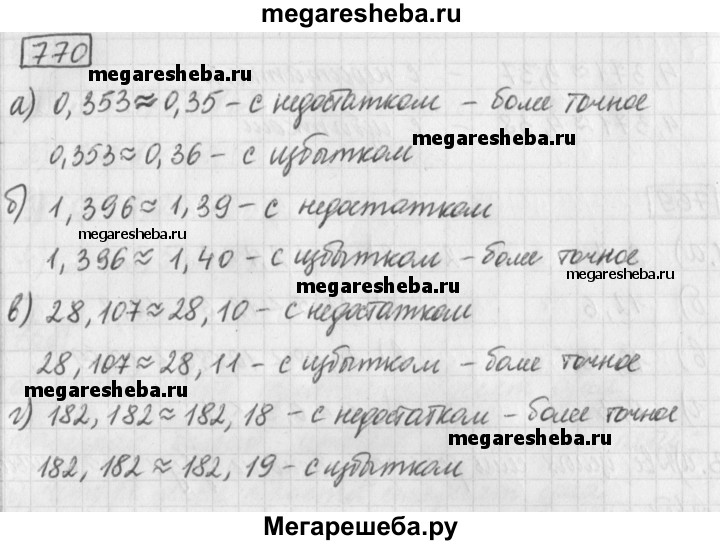 megaresheba.ru
770
megaresheba.ru
а) 0,353 ≈ 0,35 – с недостатком – более точное
0,353 ≈ 0,36 – с избытком
megaresheba.ru
б) 1,396 ≈ 1,39 – с недостатком
megaresheba.ru
1,396 ≈ 1,40 – с избытком – более точное
megaresheba.ru
megaresheba.ru
в) 28,107 ≈ 28,10 – с недостатком
28,107 ≈ 28,11 – с избытком – более точное
megaresheba.ru
г) 182,182 ≈ 182,18 – с недостатком – более точное
megaresheba.ru
182,182 ≈ 182,19 – с избытком
Мегарешеба.ру